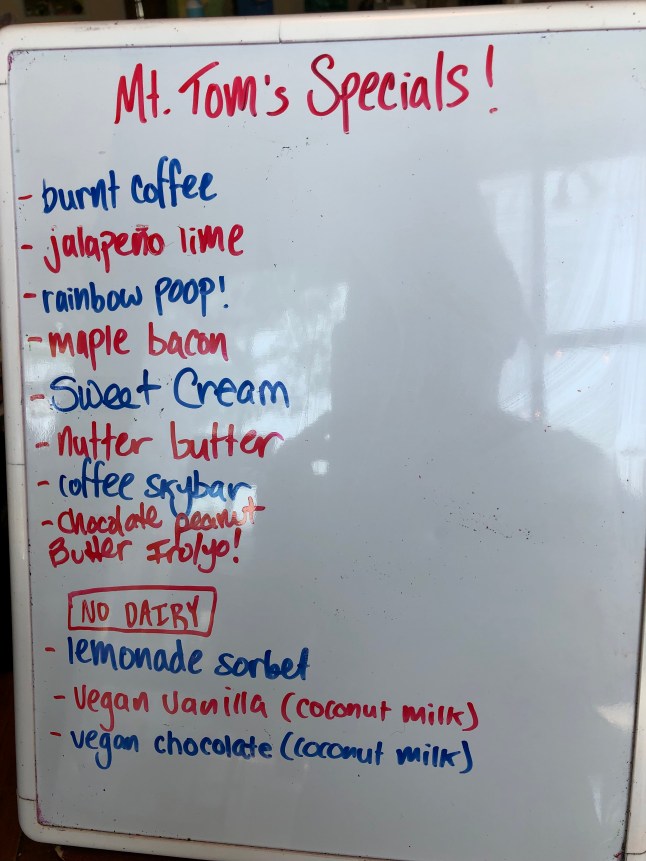 Mt. Tom's Specials!
- burnt coffee
- jalapeño lime
- rainbow poop!
- maple bacon
- Sweet Cream
- nutter butter
- coffee skybar
- chocolate peanut
Butter Froyo!
NO DAIRY
- lemonade sorbet
- vegan vanilla (coconut milk)
- vegan chocolate (coconut milk)